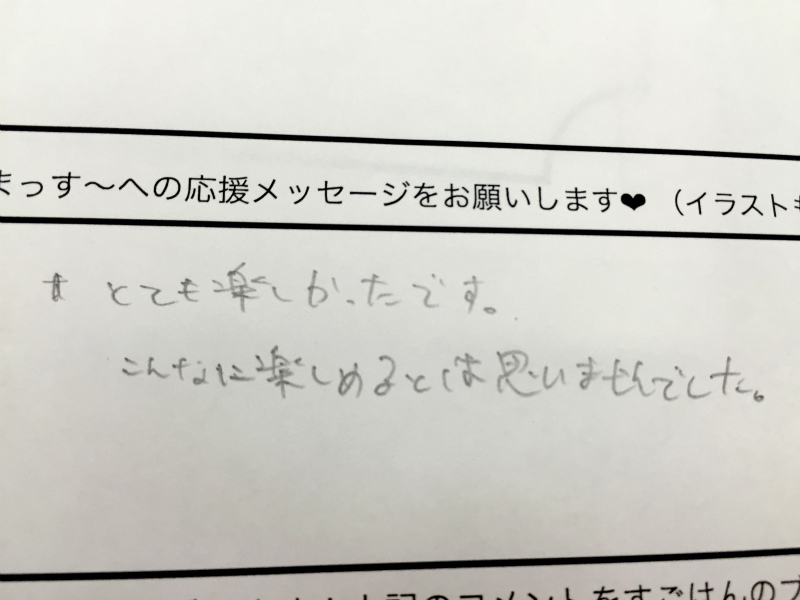 まっす〜への応援メッセージをお願いします❤（イラスト
とても楽しかったです。
こんなに楽しめるとは思いませんでした。
上記のコメントをすごはんのブ